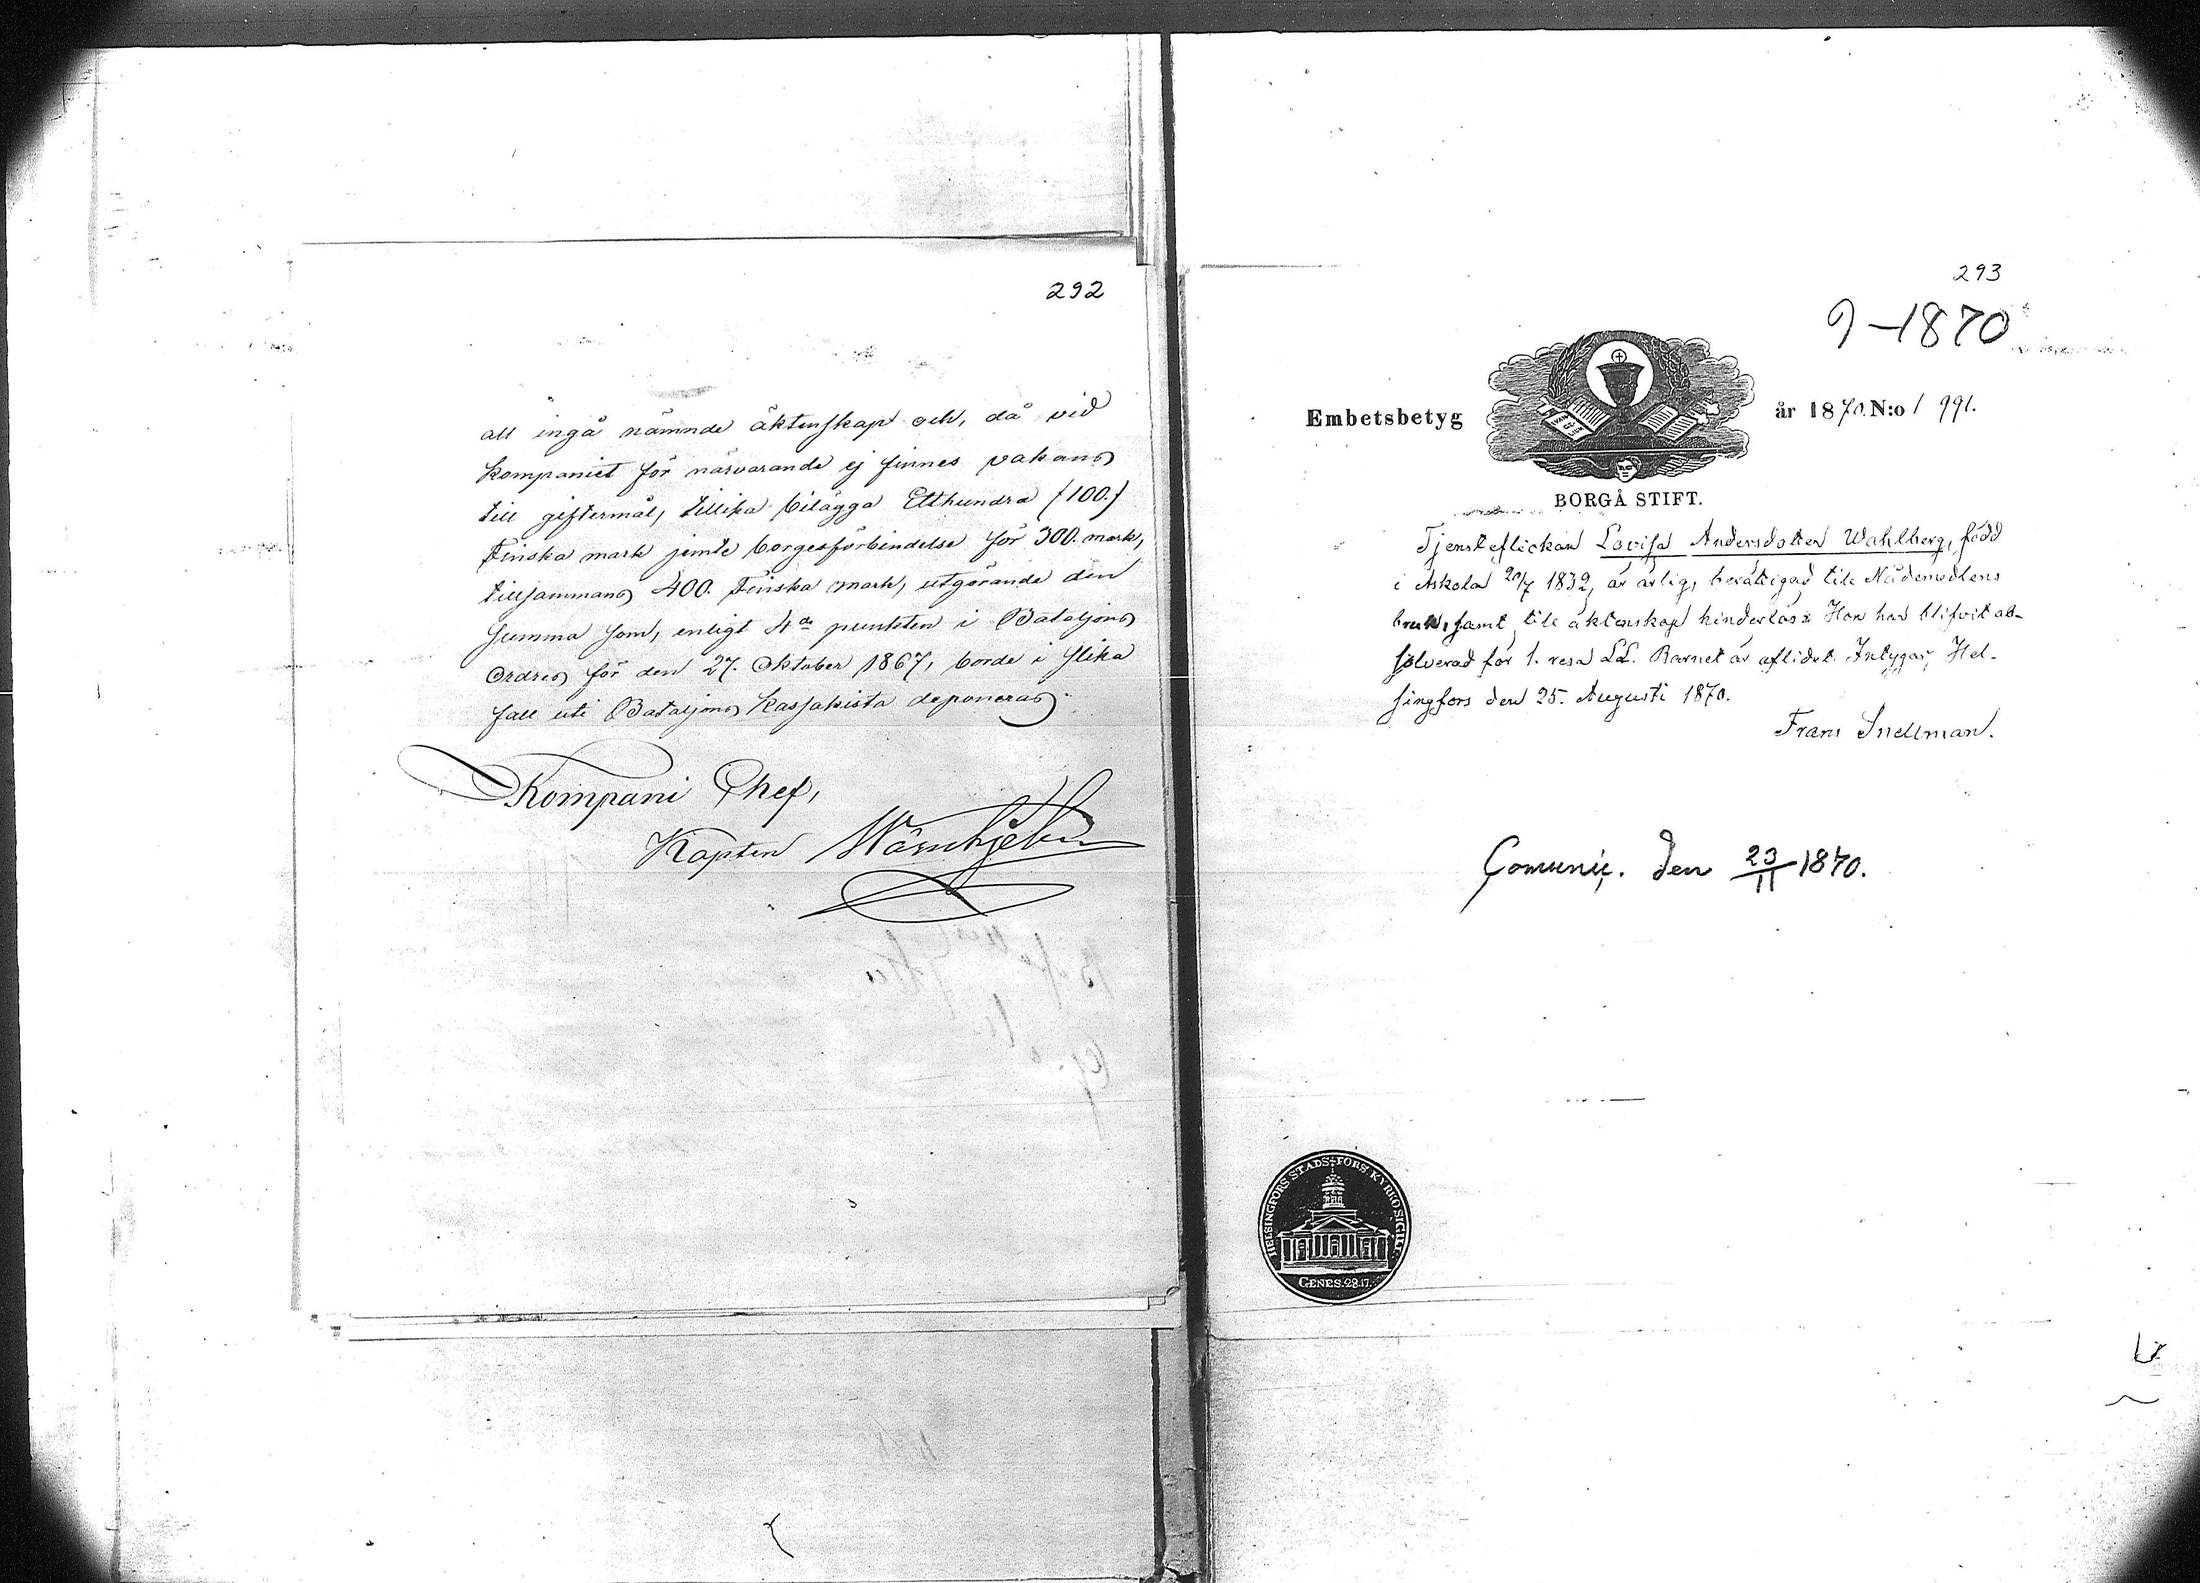 292
att ingå nämnde äktenskap och, då vid
kompaniet för närvarande ej finnes vakans
till giftermål, tillika bilägga Etthundra (100.)
Finska mark jemte borgesförbindelse för 300. mark,
tillsammans 400. Finska mark, utgörande den
summa som, enligt 4de punkten i Bataljons
Ordres för den 27. Oktober 1867, borde i slika
fall uti Bataljons Kassakista deponeras.
Kompani Chef,
Kapten Wärnhjelm
293
9-1870
Embetsbetyg år 1870. N:o 1991.
EVAN GE LIEN
BORGÅ STIFT.
Tjensteflickan Lovisa Andersdotter Wahlberg, född
i Askola 20/7 1832, är ärlig, berättigad till Nådemedlens
bruk, samt till äktenskap hinderlös. Hon har blifvit ab-
solverad för 1. resa LL. Barnet är aflidet. Intygar, Hel-
singfors den 25. Augusti 1870.
Frans Snellman.
Comunic. den 23/11 1870.
HELSINGFORS STADS-FÖRS. KYRKOSIGILL.
GENES. 28.17.